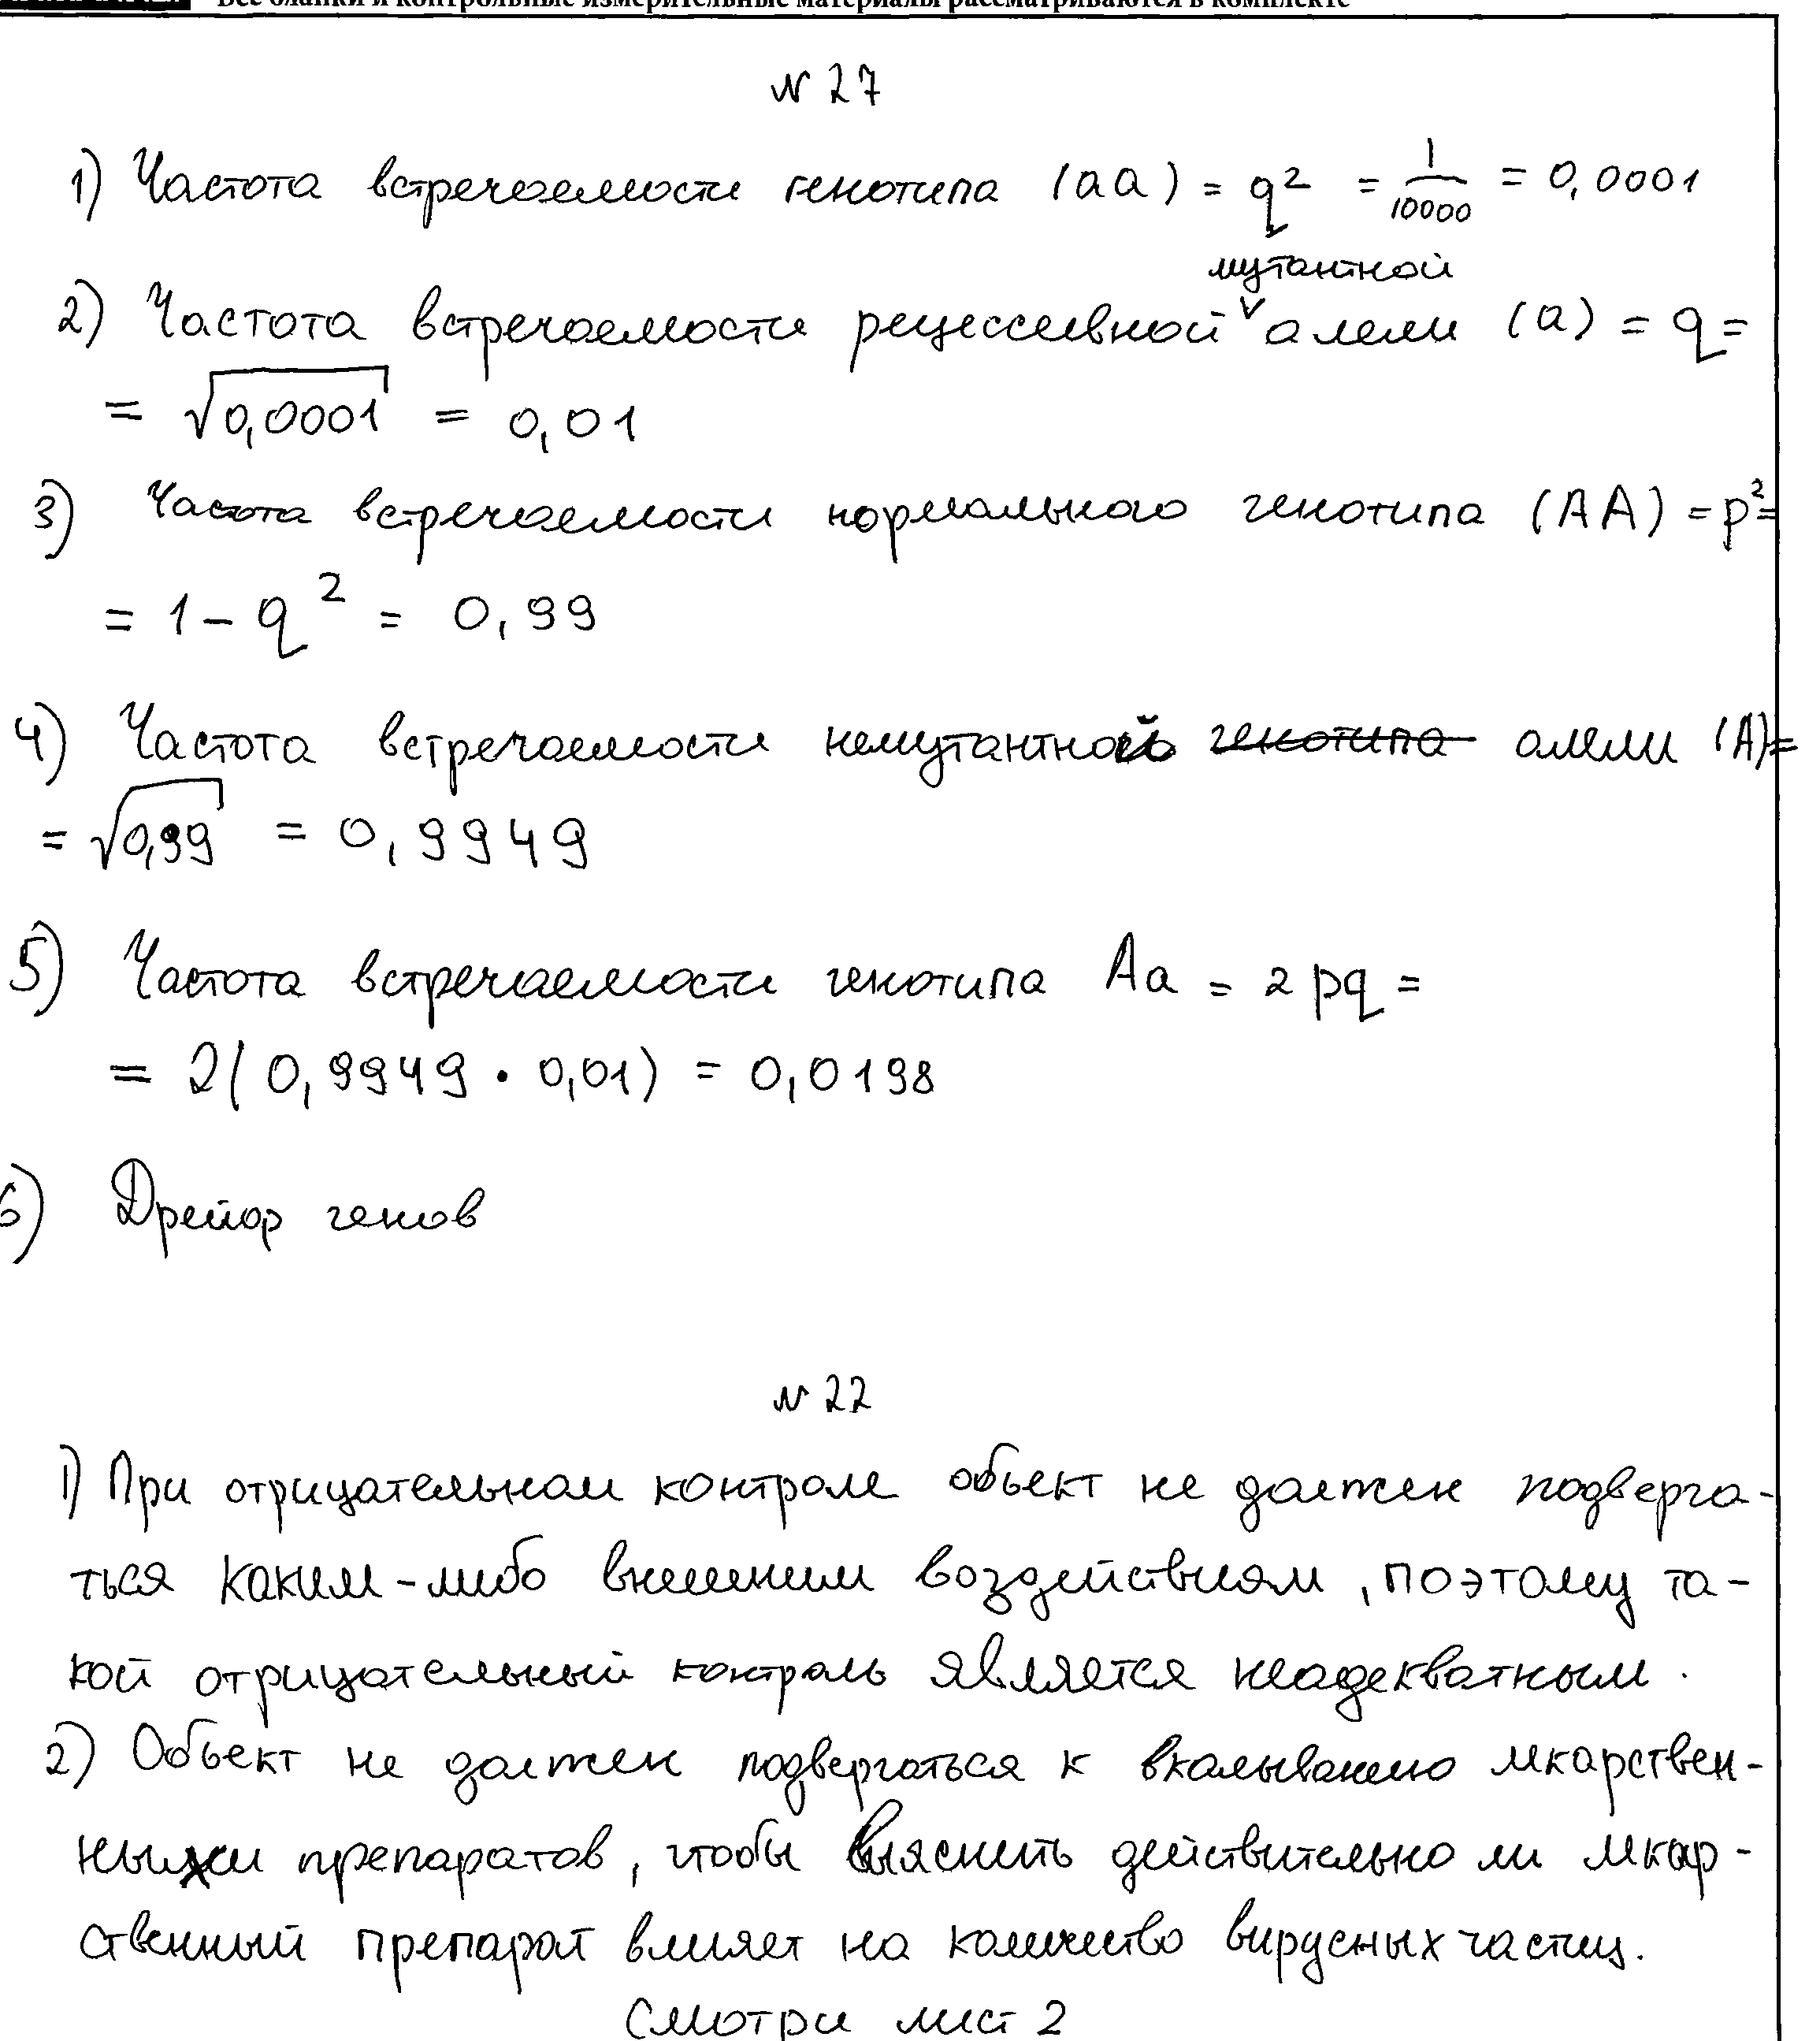 Все бланки и контрольные измерительные материалы рассматриваются в комплекте
№ 27
1) Частота встречаемости генотипа (aa) = q² = 1/10000 = 0,0001
мутантной
2) Частота встречаемости рецессивной ∨ алели (a) = q =
= √0,0001 = 0,01
3) Частота встречаемости нормального генотипа (AA) = p² =
= 1 – q² = 0,99
4) Частота встречаемости немутантной генотипа алели (A) =
= √0,99 = 0,9949
5) Частота встречаемости генотипа Aa = 2pq =
= 2(0,9949 · 0,01) = 0,0198
6) Дрейф генов
№ 22
1) При отрицательном контроле объект не должен подверга-
ться каким-либо внешним воздействиям, поэтому та-
кой отрицательный контроль является неадекватным.
2) Объект не должен подвергаться к вкалыванию лекарствен-
ных препаратов, чтобы выяснить действительно ли лекар-
ственный препарат влияет на количество вирусных частиц.
Смотри лист 2